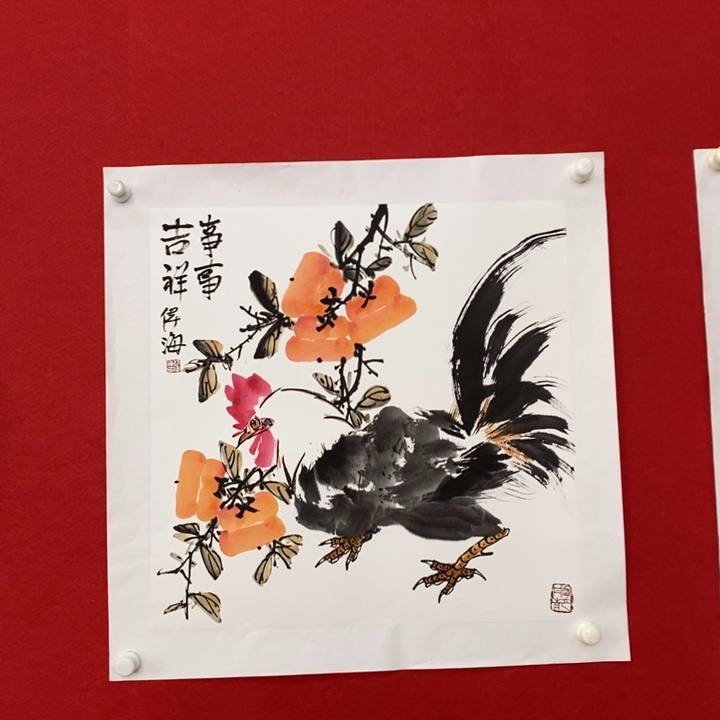 事事
吉祥
海